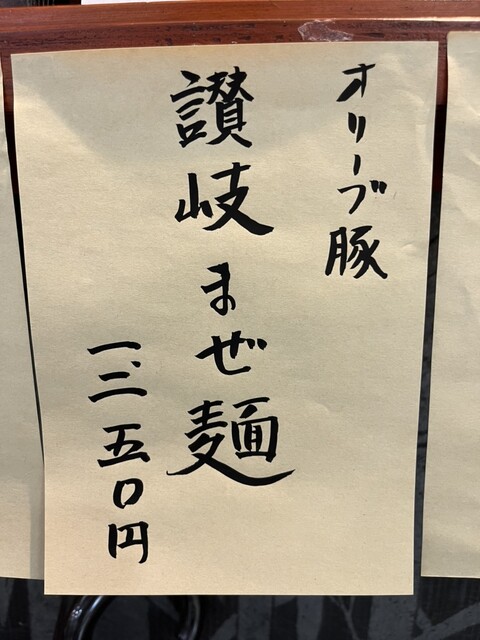 オリーブ豚
讃岐まぜ麺
一、二五〇円